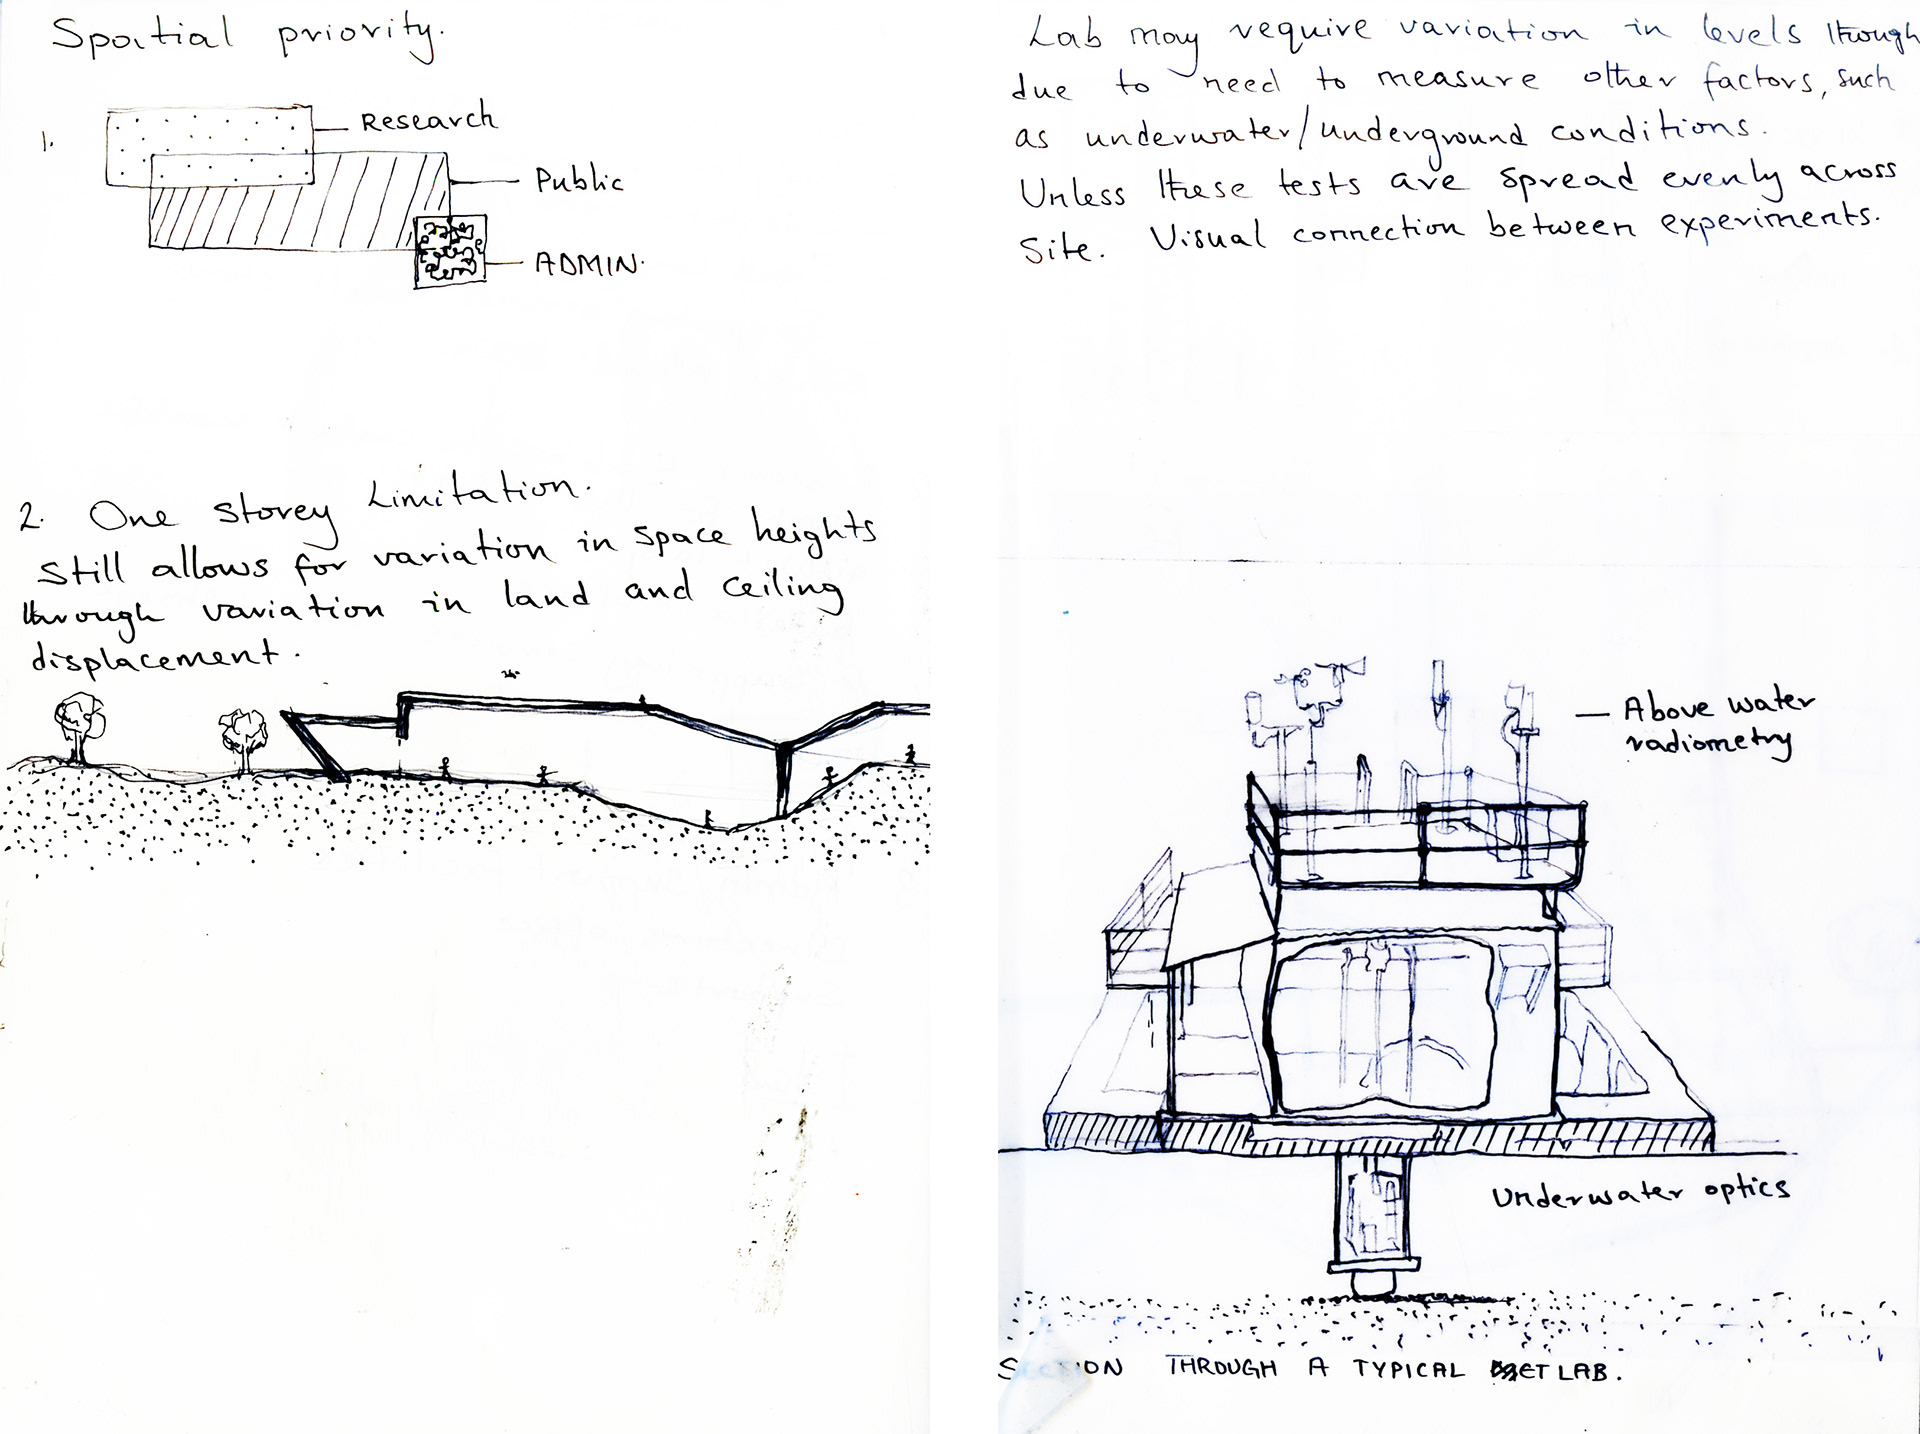 Spatial priority.
1.
Research
Public
ADMIN.
2. One storey Limitation.
Still allows for variation in space heights
through variation in land and ceiling
displacement.
Lab may require variation in levels though
due to need to measure other factors, such
as underwater/underground conditions.
Unless these tests are spread evenly across
Site. Visual connection between experiments.
Above water
radiometry
Underwater optics
SECTION THROUGH A TYPICAL LAB.